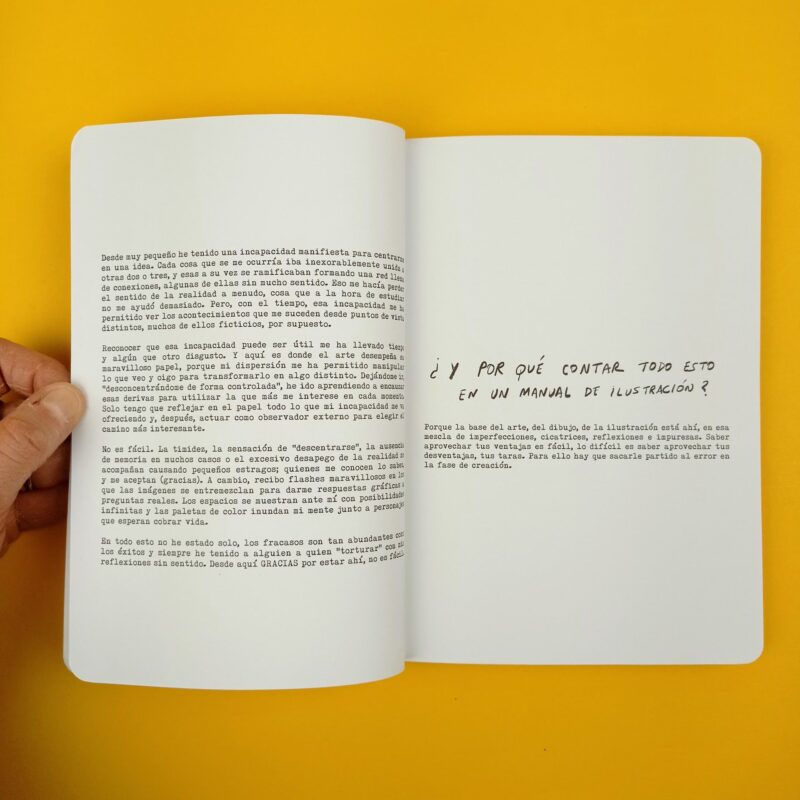 Desde muy pequeño he tenido una incapacidad manifiesta para centrarme
en una idea. Cada cosa que se me ocurría iba inexorablemente unida a
otras dos o tres, y esas a su vez se ramificaban formando una red llena
de conexiones, algunas de ellas sin mucho sentido. Eso me hacía perder
el sentido de la realidad a menudo, cosa que a la hora de estudiar
no me ayudó demasiado. Pero, con el tiempo, esa incapacidad me ha
permitido ver los acontecimientos que me suceden desde puntos de vista
distintos, muchos de ellos ficticios, por supuesto.
Reconocer que esa incapacidad puede ser útil me ha llevado tiempo
y algún que otro disgusto. Y aquí es donde el arte desempeña su
maravilloso papel, porque mi dispersión me ha permitido manipular
lo que veo y oigo para transformarlo en algo distinto. Dejándome ir,
"desconcentrándome de forma controlada", he ido aprendiendo a encauzar
esas derivas para utilizar la que más me interese en cada momento.
Solo tengo que reflejar en el papel todo lo que mi incapacidad me va
ofreciendo y, después, actuar como observador externo para elegir el
camino más interesante.
No es fácil. La timidez, la sensación de "descentrarse", la ausencia
de memoria en muchos casos o el excesivo desapego de la realidad me
acompañan causando pequeños estragos; quienes me conocen lo saben
y me aceptan (gracias). A cambio, recibo flashes maravillosos en los
que las imágenes se entremezclan para darme respuestas gráficas a
preguntas reales. Los espacios se muestran ante mí con posibilidades
infinitas y las paletas de color inundan mi mente junto a personajes
que esperan cobrar vida.
En todo esto no he estado solo, los fracasos son tan abundantes como
los éxitos y siempre he tenido a alguien a quien "torturar" con mis
reflexiones sin sentido. Desde aquí GRACIAS por estar ahí, no es fácil.
¿Y POR QUÉ CONTAR TODO ESTO
EN UN MANUAL DE ILUSTRACIÓN?
Porque la base del arte, del dibujo, de la ilustración está ahí, en esa
mezcla de imperfecciones, cicatrices, reflexiones e impuresas. Saber
aprovechar tus ventajas es fácil, lo difícil es saber aprovechar tus
desventajas, tus taras. Para ello hay que sacarle partido al error en
la fase de creación.